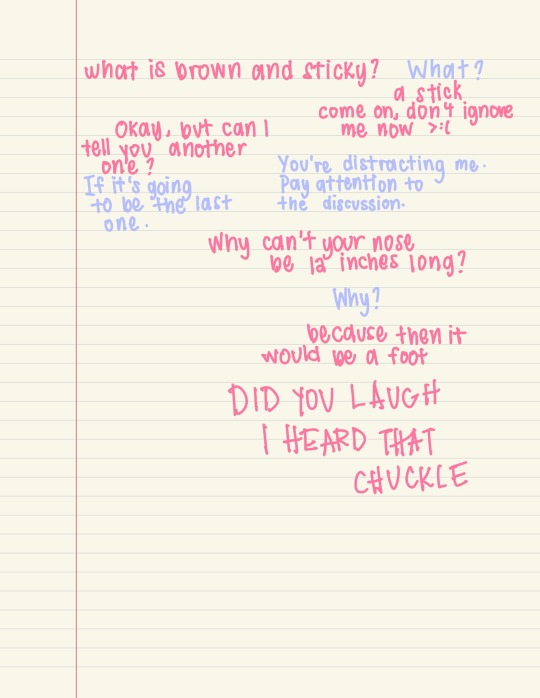 what is brown and sticky? What?
a stick
come on, don't ignore
me now >:(
You're distracting me.
Pay attention to
the discussion.
Okay, but can I
tell you another
one?
If it's going
to be the last
one.
Why can't your nose
be 12 inches long?
Why?
because then it
would be a foot
DID YOU LAUGH
I HEARD THAT
CHUCKLE